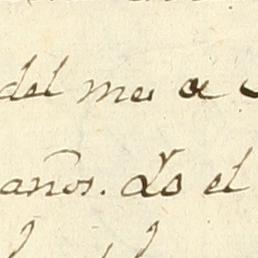 del mes de
años. Yo el